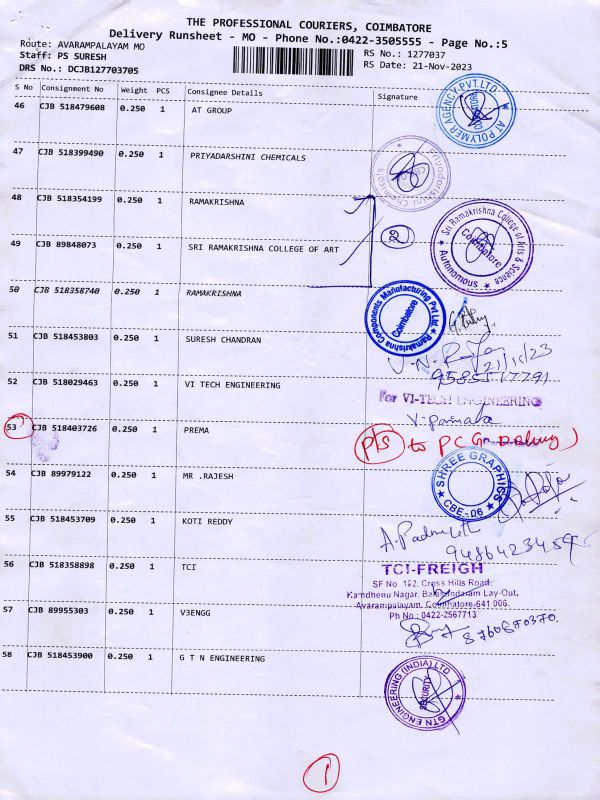 THE PROFESSIONAL COURIERS, COIMBATORE
Delivery Runsheet - MO - Phone No.:0422-3505555 - Page No.:5
Route: AVARAMPALAYAM MO
RS No.: 1277037
Staff: PS SURESH
RS Date: 21-Nov-2023
DRS No.: DCJB127703705
S No Consignment No Weight PCS Consignee Details Signature
46 CJB 518479608 0.250 1 AT GROUP
AT POLYMER AGENCY PVT.LTD
47 CJB 518399490 0.250 1 PRIYADARSHINI CHEMICALS
Priyadarshini Chemicals
48 CJB 518354199 0.250 1 RAMAKRISHNA
49 CJB 89848073 0.250 1 SRI RAMAKRISHNA COLLEGE OF ART
29
Sri Ramakrishna College of Arts & Science
Coimbatore
Autonomous
50 CJB 518358740 0.250 1 RAMAKRISHNA
Ramakrishna Components Manufacturing Pvt Ltd.
Coimbatore
51 CJB 518453803 0.250 1 SURESH CHANDRAN
21/11/23
9585517791
52 CJB 518029463 0.250 1 VI TECH ENGINEERING
For VI-TECH ENGINEERING
53 CJB 518403726 0.250 1 PREMA
pts to PC
54 CJB 89979122 0.250 1 MR .RAJESH
SHREE GRAPHICS
CBE-06
55 CJB 518453709 0.250 1 KOTI REDDY
9486423459
56 CJB 518358898 0.250 1 TCI
TCI-FREIGH
SF No. 192, Cross Hills Road.
Kamdhenu Nagar, Balasundaram Lay-Out,
Avarampalayam, Coimbatore-641 006.
Ph No : 0422-2567713
57 CJB 89955303 0.250 1 V3ENGG
8760870370.
58 CJB 518453900 0.250 1 G T N ENGINEERING
GTN ENGINEERING (INDIA) LTD
SECURITY
1